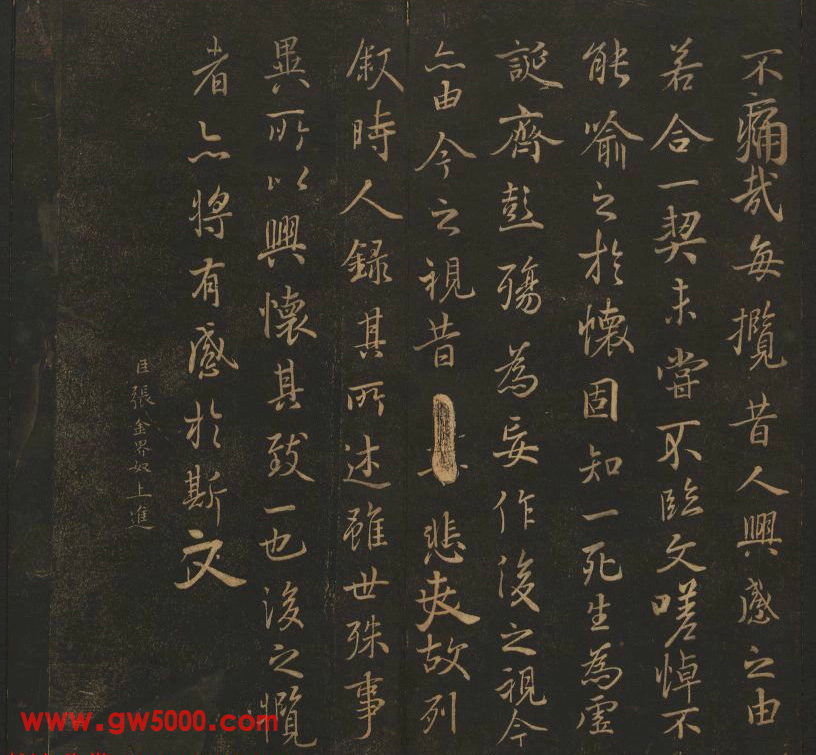 不痛哉每攬昔人興感之由
若合一契未嘗不臨文嗟悼不
能喻之於懷固知一死生為虛
誕齊彭殤為妄作後之視今
亦由今之視昔 悲夫故列
叙時人錄其所述雖世殊事
異所以興懷其致一也後之攬
者亦將有感於斯文
臣張金界奴上進
www.gw5000.com